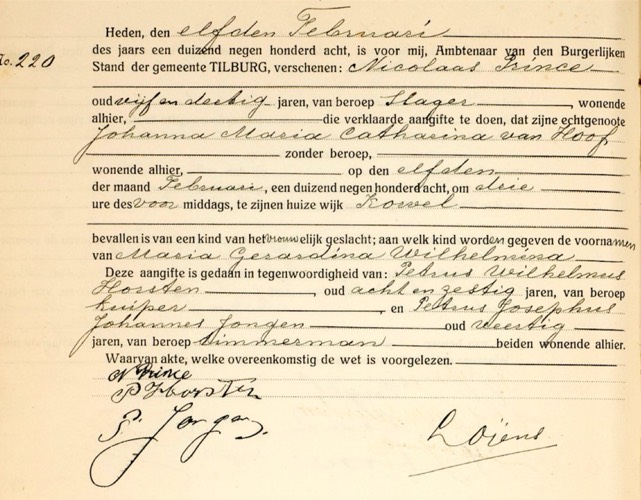 Heden, den elfden Februari
No. 220
des jaars een duizend negen honderd acht, is voor mij, Ambtenaar van den Burgerlijken
Stand der gemeente TILBURG, verschenen: Nicolaas Prince
oud vijf en dertig jaren, van beroep Slager, wonende
alhier, die verklaarde aangifte te doen, dat zijne echtgenoote
Johanna Maria Catharina van Hoof
zonder beroep,
wonende alhier, op den elfden
der maand Februari, een duizend negen honderd acht, om drie
ure des voor middags, te zijnen huize wijk Korvel
bevallen is van een kind van het vrouwelijk geslacht; aan welk kind worden gegeven de voornamen
van Maria Gerardina Wilhelmina
Deze aangifte is gedaan in tegenwoordigheid van: Petrus Wilhelmus
Horsten, oud acht en zestig jaren, van beroep
kuiper, en Petrus Josephus
Johannes Jongen oud veertig
jaren, van beroep timmerman beiden wonende alhier.
Waarvan akte, welke overeenkomstig de wet is voorgelezen.
N Prince
P W Horsten
P. Jongen